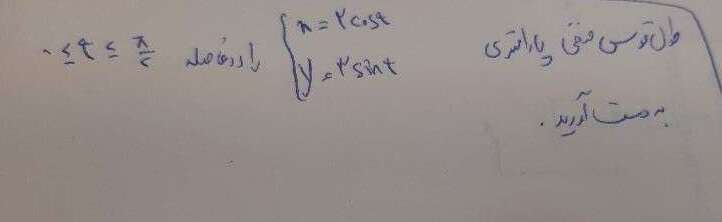 طول قوس منحنی پارامتری { x = ۲cost , y = ۲sint را در فاصله ۰ ≤ t ≤ π/۲
به دست آورید.